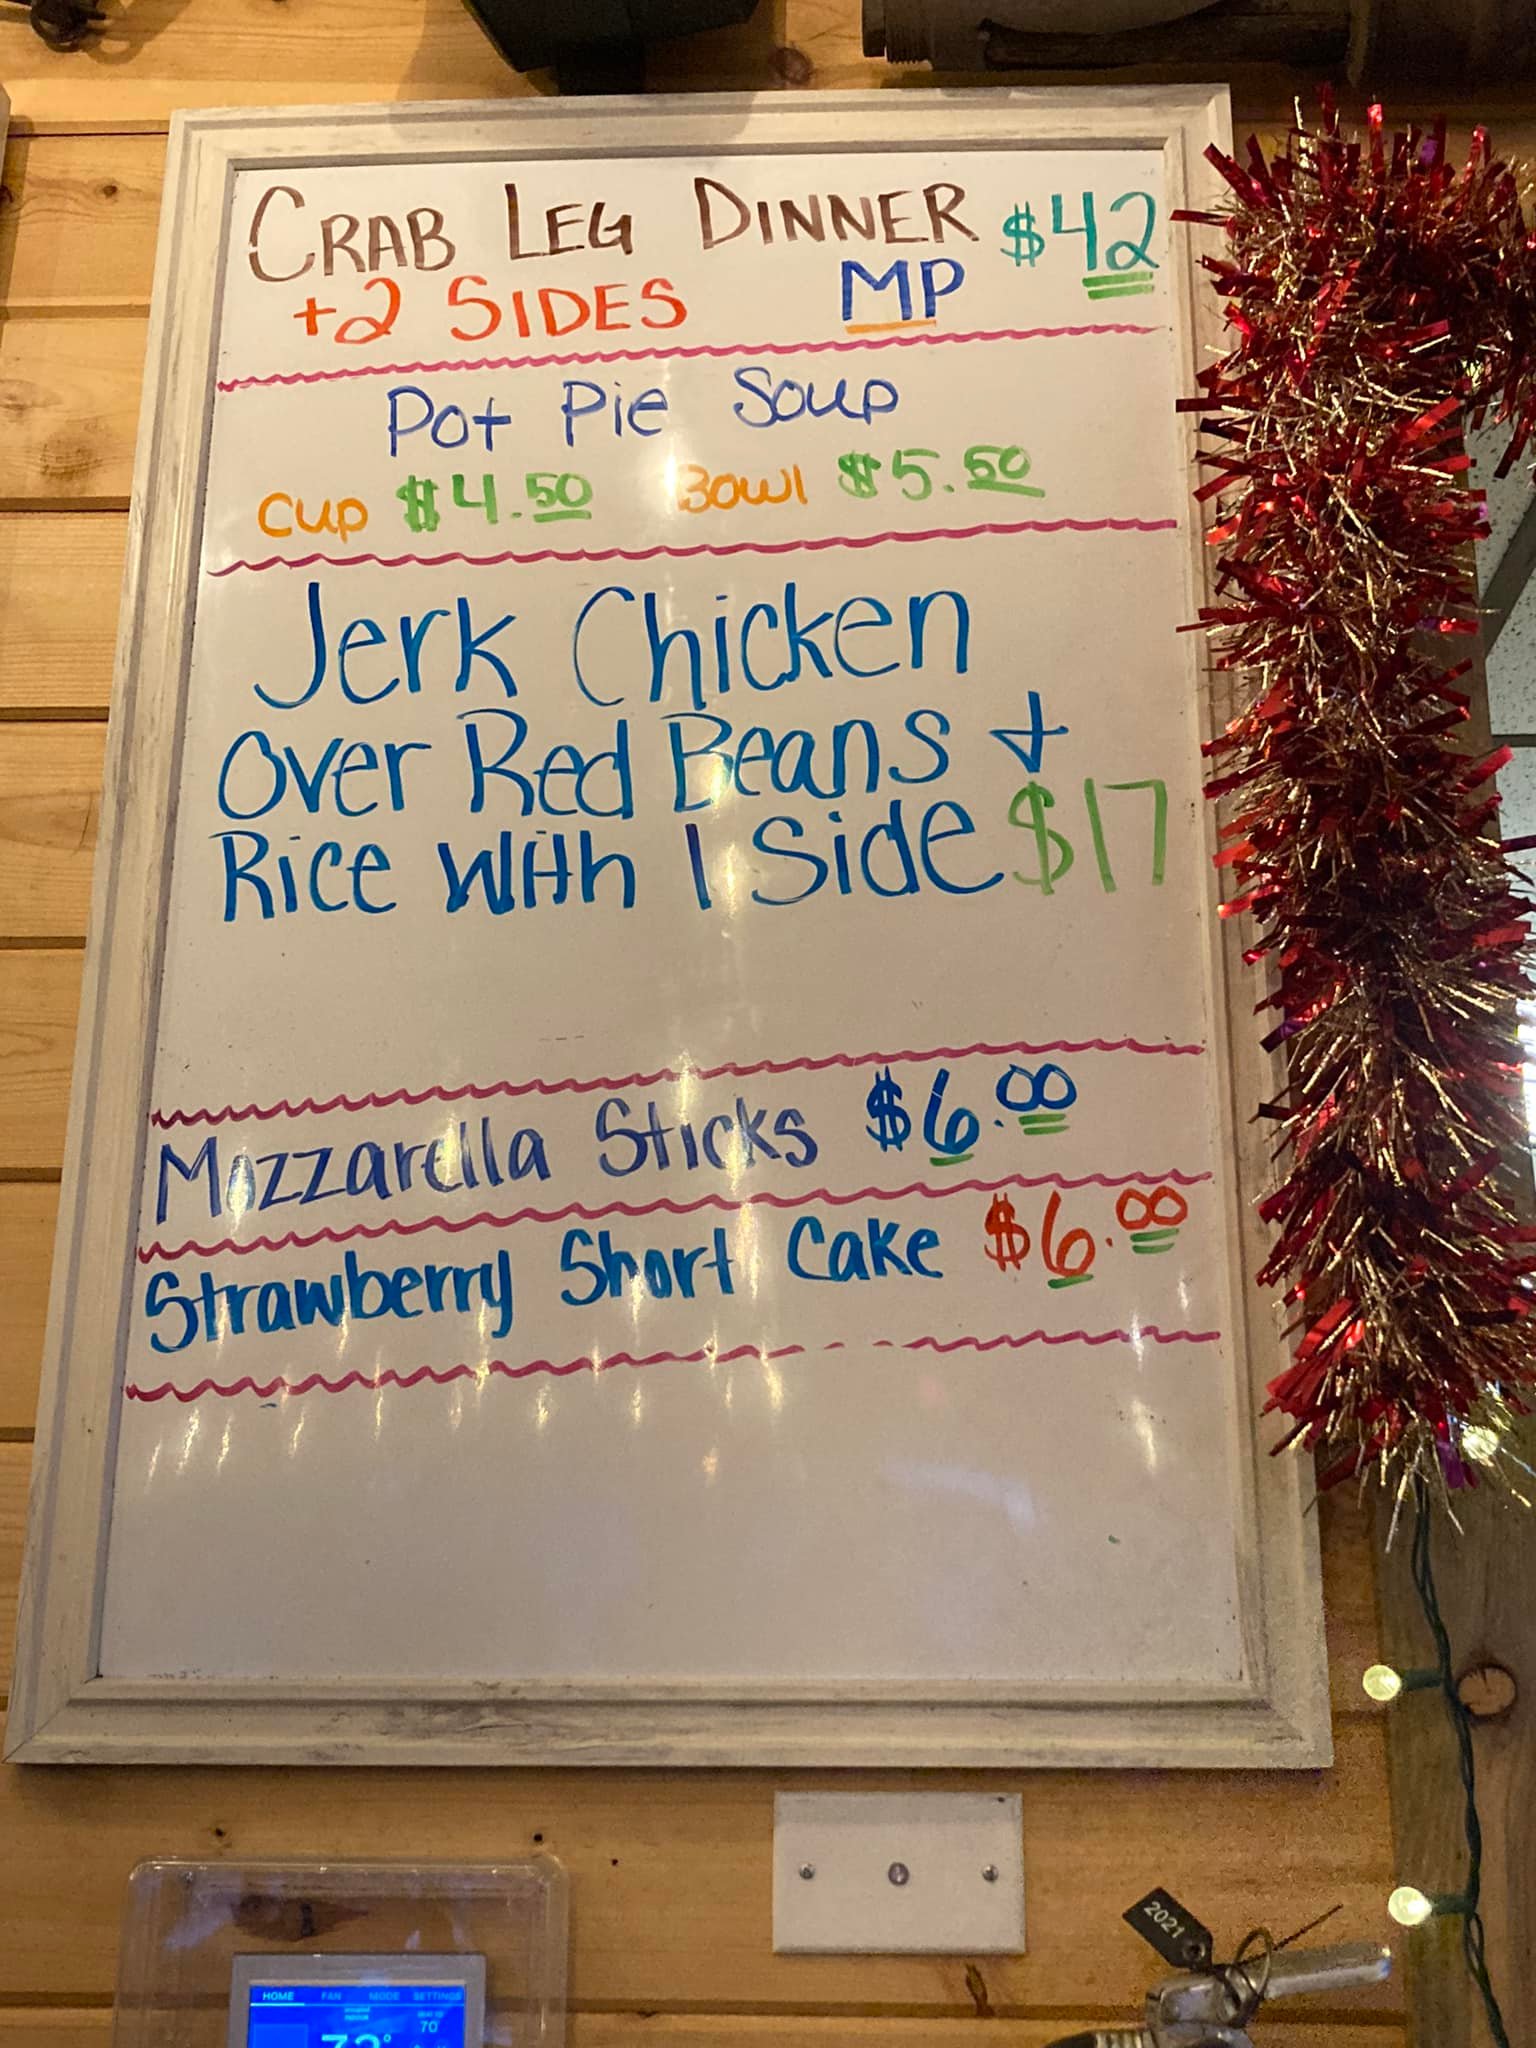 CRAB LEG DINNER $42
+2 SIDES MP
Pot Pie Soup
Cup $4.50 Bowl $5.50
Jerk Chicken
Over Red Beans +
Rice With 1 Side $17
Mozzarella Sticks $6.00
Strawberry Short Cake $6.00
2021
HOME FAN MODE SETTINGS
70
72°